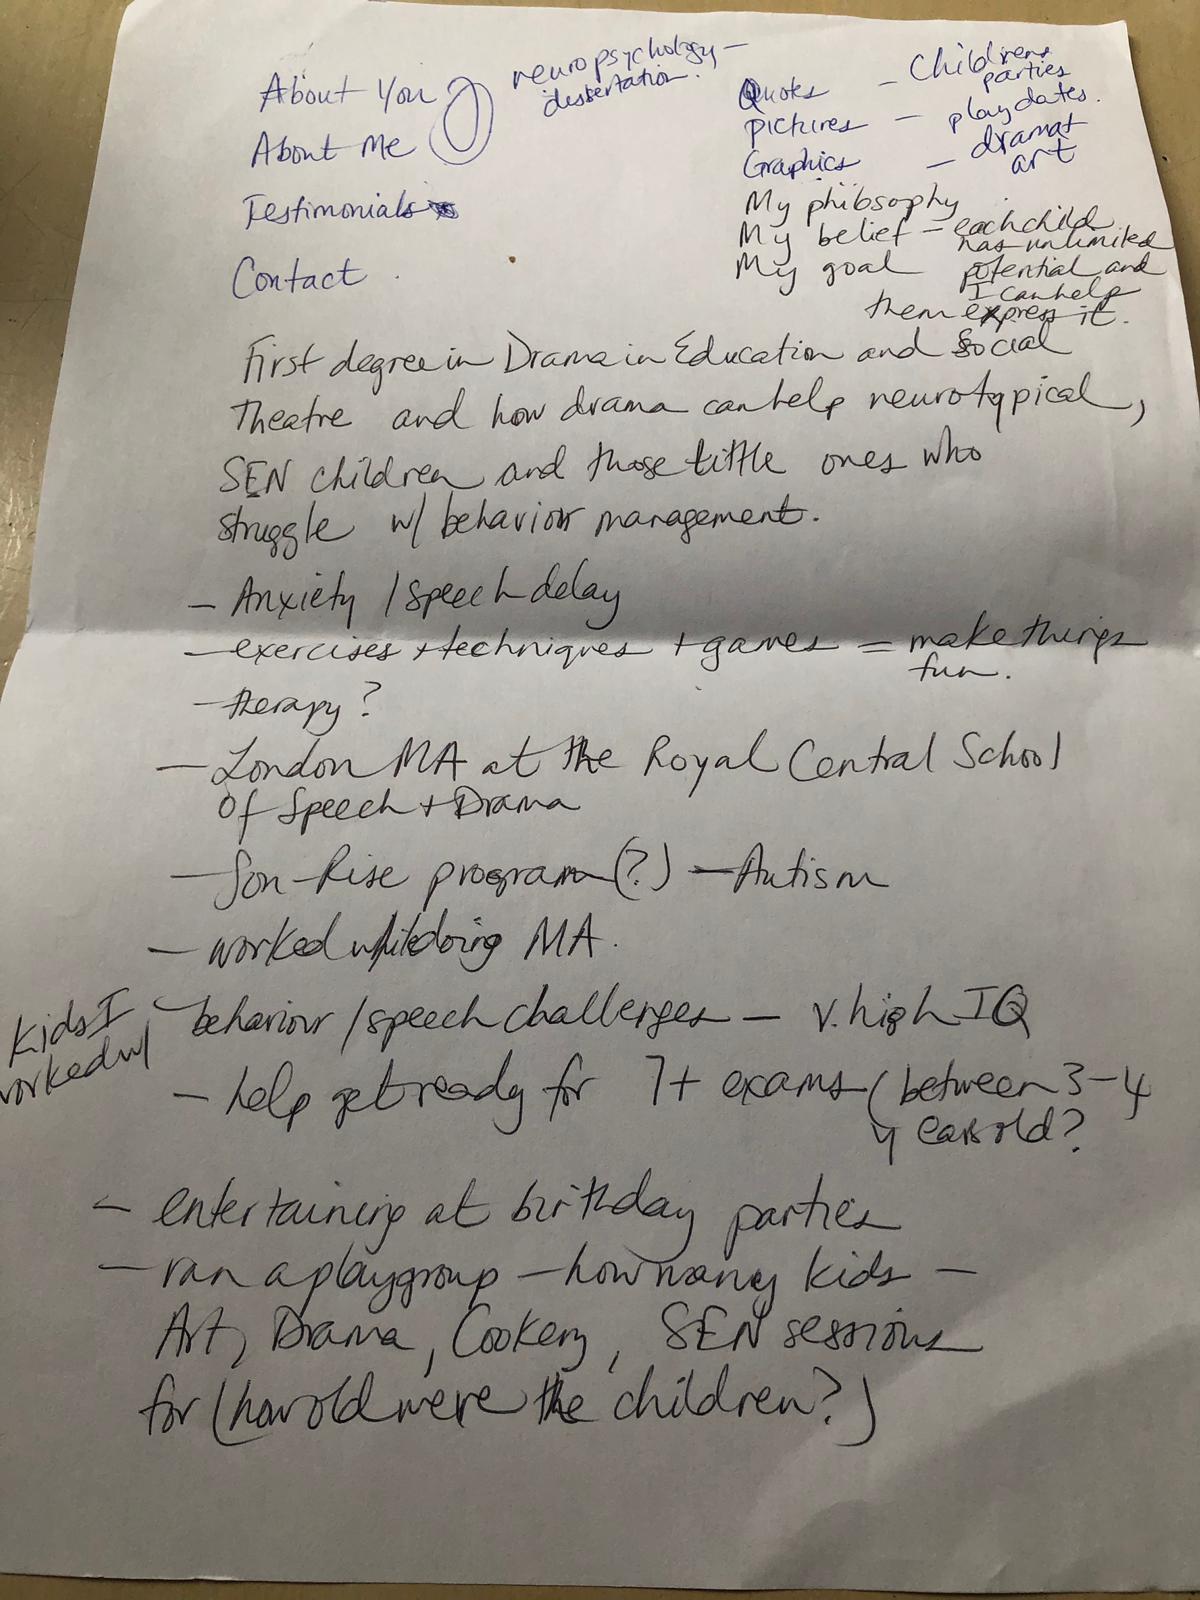 About You
About Me
Testimonials
Contact
neuropsychology –
dissertation.
Quotes – Childrens parties
pictures – playdates.
Graphics – drama + art
My philosophy
My belief – each child
has unlimited
My goal potential and
I can help
them express it.
First degree in Drama in Education and Social
Theatre and how drama can help neurotypical,
SEN children and those little ones who
struggle w/ behaviour management.
– Anxiety / speech delay
– exercises + techniques + games = make things
fun.
– therapy?
– London MA at the Royal Central School
of Speech + Drama
– Son-Rise program (?) – Autism
– worked while doing MA.
Kids I
worked w/
– behaviour / speech challenges – v. high IQ
– help get ready for 7+ exams (between 3-4
years old?
– entertaining at birthday parties
– ran a playgroup – how many kids –
Art, Drama, Cookery, SEN sessions
for (how old were the children?)